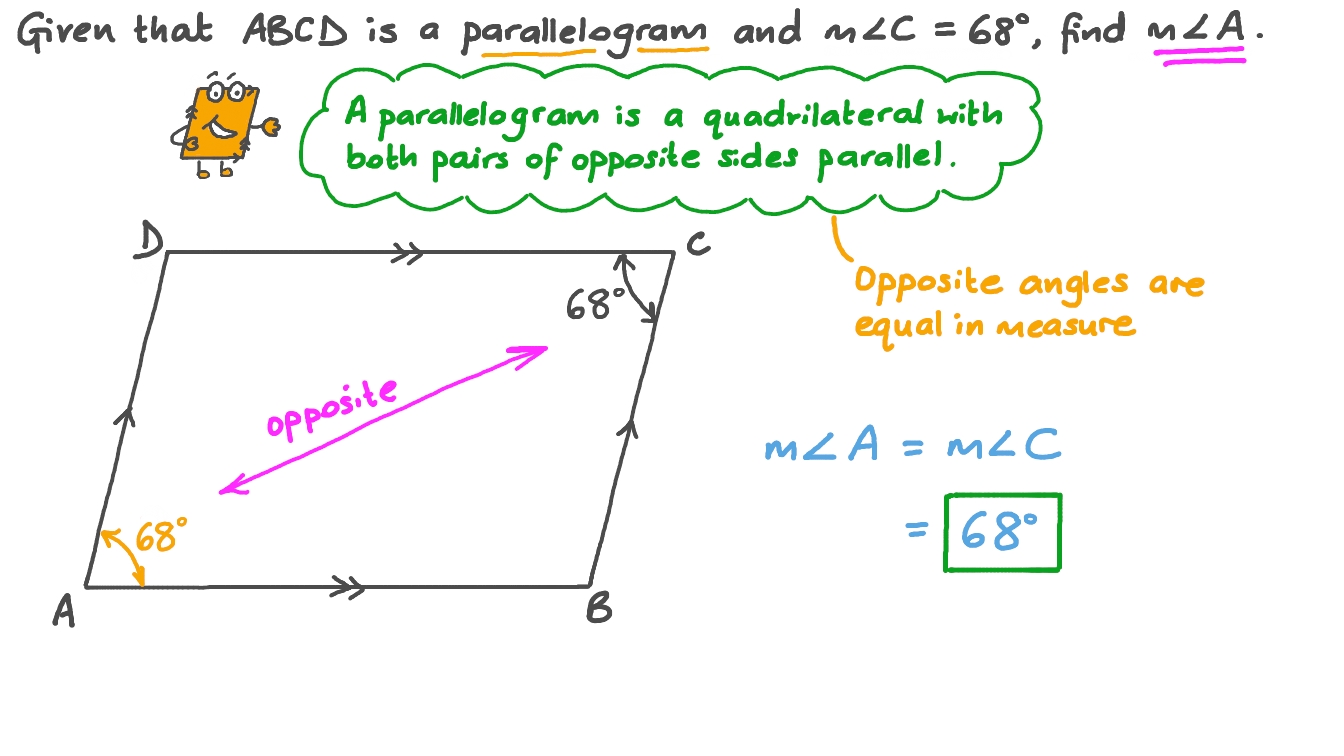 Given that ABCD is a parallelogram and m∠C = 68°, find m∠A.
A parallelogram is a quadrilateral with
both pairs of opposite sides parallel.
D
C
68°
Opposite angles are
equal in measure
opposite
m∠A = m∠C
= 68°
68°
A
B